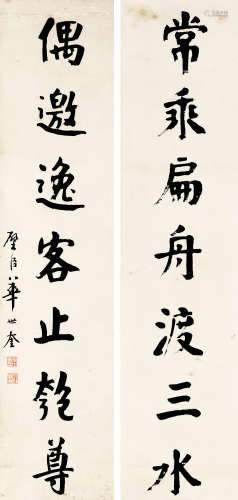 常乘扁舟渡三水
偶邀逸客止匏尊
璧臣華世奎